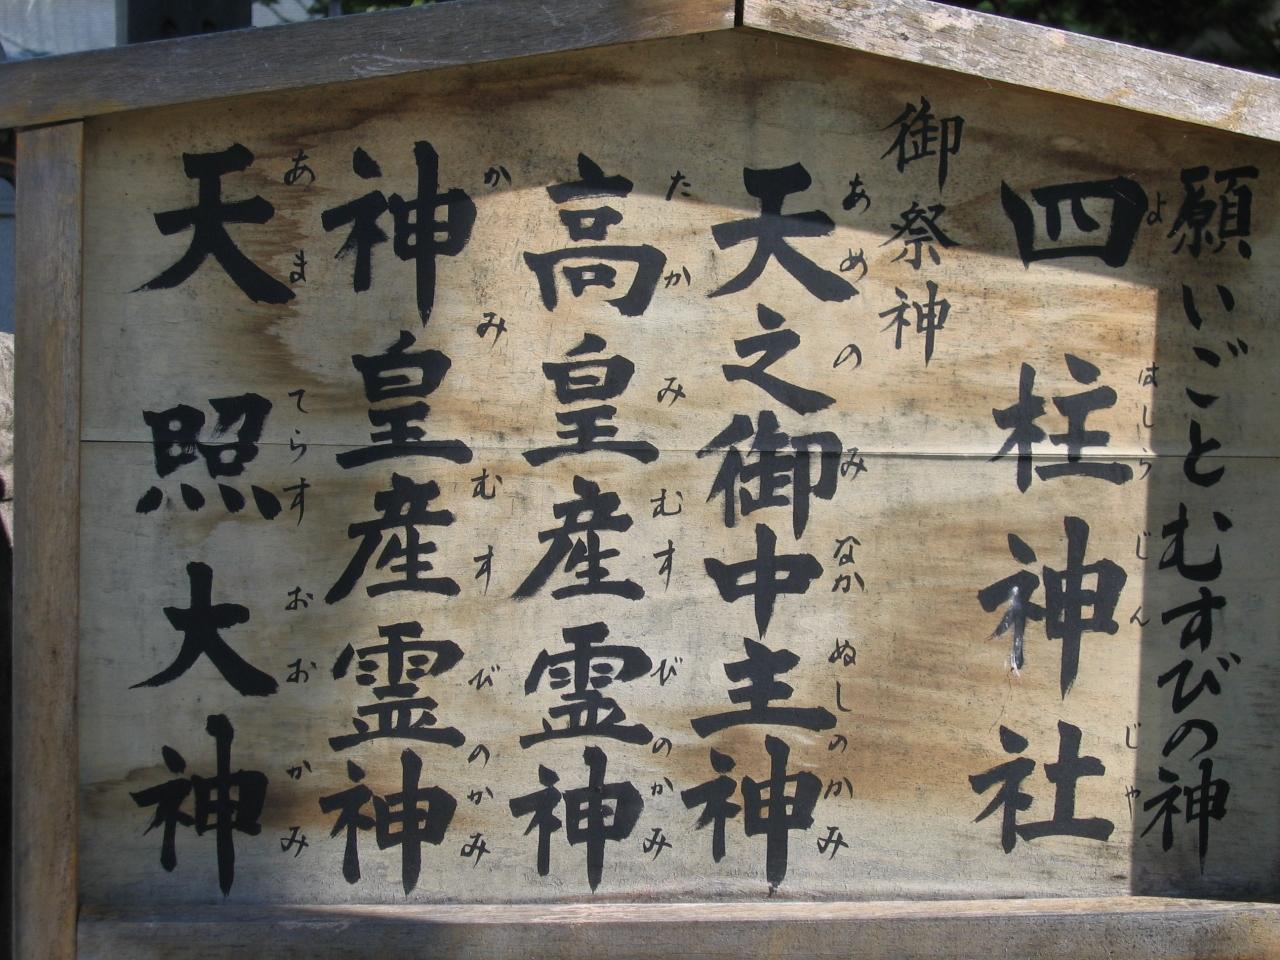 願いごとむすびの神
四柱神社
よはしらじんじゃ
御祭神
天之御中主神
あめのみなかぬしのかみ
高皇産霊神
たかみむすびのかみ
神皇産霊神
かみむすびのかみ
天照大神
あまてらすおおかみ